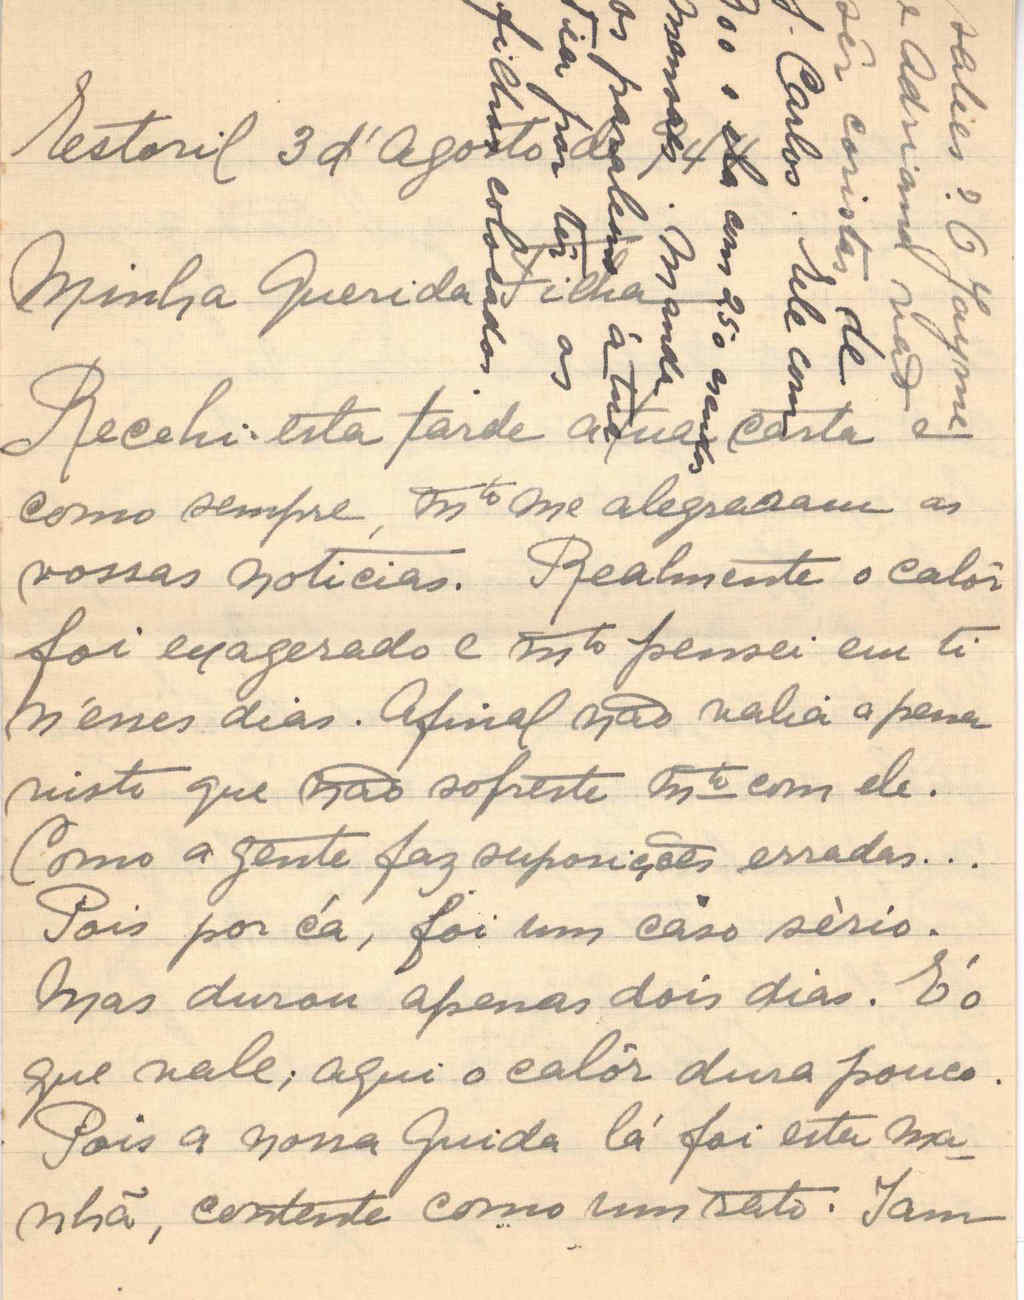 Estoril 3 d'Agosto de 944
Minha Querida Filha
Recebi esta tarde a tua carta e
como sempre, mto me alegraram as
vossas noticias. Realmente o calôr
foi exagerado e mto pensei em ti
n'esses dias. Afinal não valia a pena
visto que não sofreste mto com ele.
Como a gente faz suposições erradas...
Pois por cá, foi um cáso sério.
Mas durou apenas dois dias. É o
que vale; aqui o calôr dura pouco.
Pois a nossa Guida lá foi esta ma-
nhã, contente como um rato. Iam
sabes? O Jayme
e Adriana vão
sêr coristas de
S. Carlos. Ele com
300 e ela com 250 escudos
mensaes. Manda
os parabens á tua
Tia por têr os
filhos colocados.